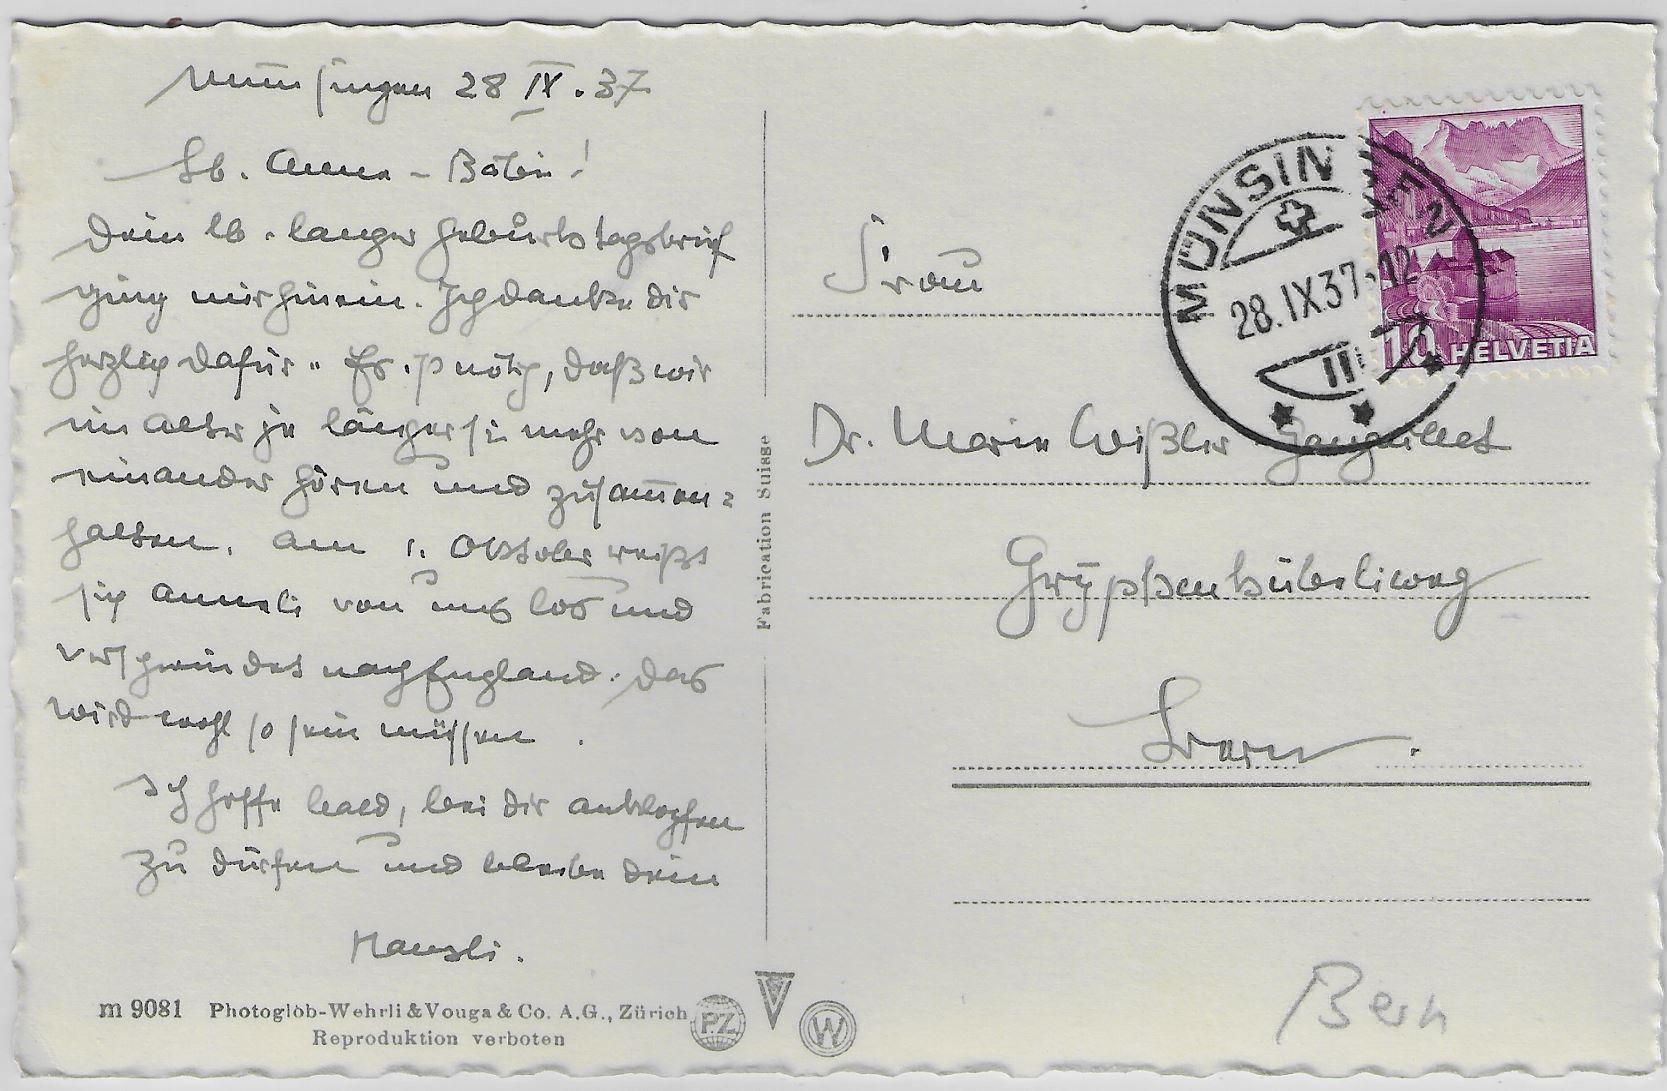 Münsingen 28 IX. 37
Lb. Anna-Bäbi!
Dein lb. langer Geburtstagsbrief
ging mir hinein. Ich danke dir
herzlich dafür. Es ist nötig, daß wir
im Alter je länger je mehr von
einander hören und zusammen=
halten. Am 1. Oktober reißt
sich Anneli von uns los und
verschwindet nach England. Das
wird wohl so sein müssen.
Ich hoffe bald, bei dir anklopfen
zu dürfen und bleibe dein
Hansli.
m 9081 Photoglob-Wehrli & Vouga & Co. A.G., Zürich
Reproduktion verboten
PZ
W
Fabrication Suisse
MÜNSINGEN
28.IX.37-12
10 HELVETIA
Frau
Dr. Marie Wißler Ganguillet
Gryphenhübeliweg
Bern.
Bern